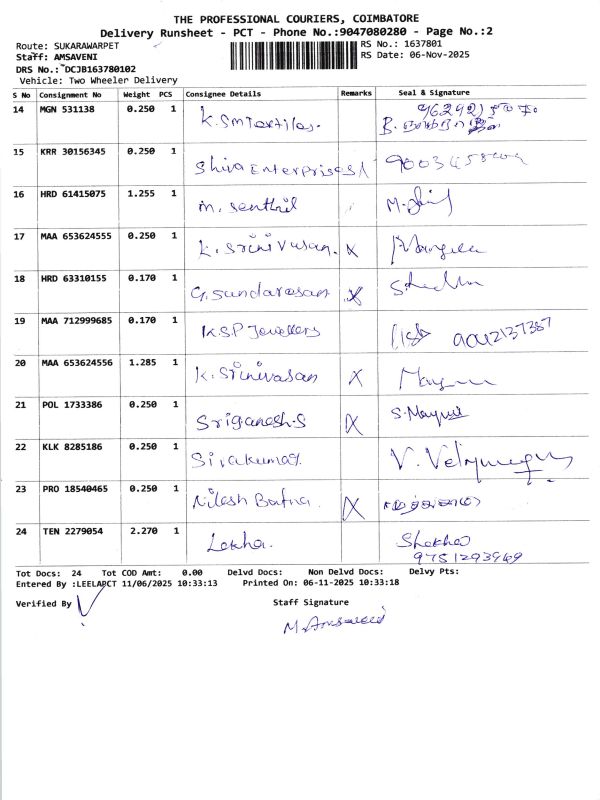 THE PROFESSIONAL COURIERS, COIMBATORE
Delivery Runsheet - PCT - Phone No.:9047080280 - Page No.:2
Route: SUKARAWARPET
RS No.: 1637801
Staff: AMSAVENI
RS Date: 06-Nov-2025
DRS No.: DCJB163780102
Vehicle: Two Wheeler Delivery
S No Consignment No Weight PCS Consignee Details Remarks Seal & Signature
14 MGN 531138 0.250 1 K.SM Textiles.
15 KRR 30156345 0.250 1 Shiva Enterprises
16 HRD 61415075 1.255 1 M. Senthil
17 MAA 653624555 0.250 1 K. Srinivasan. X
18 HRD 63310155 0.170 1 G. Sundaresan X
19 MAA 712999685 0.170 1 K.S.P Jewellers
20 MAA 653624556 1.285 1 K. Srinivasan X
21 POL 1733386 0.250 1 Sriganesh.S X
22 KLK 8285186 0.250 1 Sivakumar.
23 PRO 18540465 0.250 1 Nilesh Bafna. X
24 TEN 2279054 2.270 1 Lekha. Shekhar
9751293969
Tot Docs: 24 Tot COD Amt: 0.00 Delvd Docs: Non Delvd Docs: Delvy Pts:
Entered By :LEELAPCT 11/06/2025 10:33:13 Printed On: 06-11-2025 10:33:18
Verified By
Staff Signature
M. Amsaveni